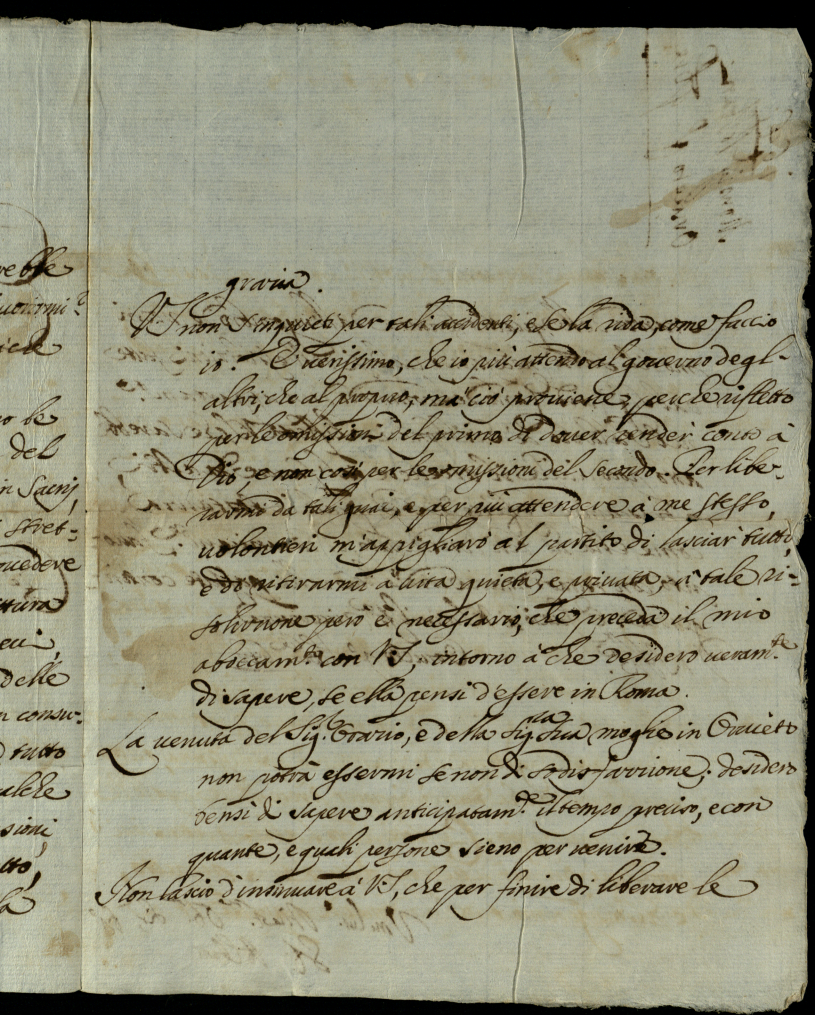 rebbe
iere
no be
del
in Sacrij,
stret-
ovedere
ittura
evi,
delle
n consu-
tutto
ualche
sioni,
tto,
la
gravia.
VS non s'inquieti per tali accidenti, e se la rida, come faccio
io. È verissimo, che io più attendo al governo degl-
altri, che al proprio; ma ciò proviene, perche rifletto
per le omissioni del primo di dover render conto à
Dio, e non così per le omissioni del secondo. Per libe-
rarmi da tali guai, e per più attendere à me stesso,
volontieri m'appigliarò al partito di lasciar tutto,
e di ritirarmi à vita quieta, e privata; à tale ri-
soluzione però è necessario, che preceda il mio
aboccam.to con VS, intorno à che desidero veram.te
di sapere, se ella pensi d'essere in Roma.
La venuta del Sig.r Orazio, e della Sig.ra Sua moglie in Orvieto
non potrà essermi se non di sodisfazzione; desidero
bensì di sapere anticipatam.te il tempo preciso, e con
quante, e quali persone sieno per venire.
Non lascio d'insinuare à VS, che per finire di liberare le